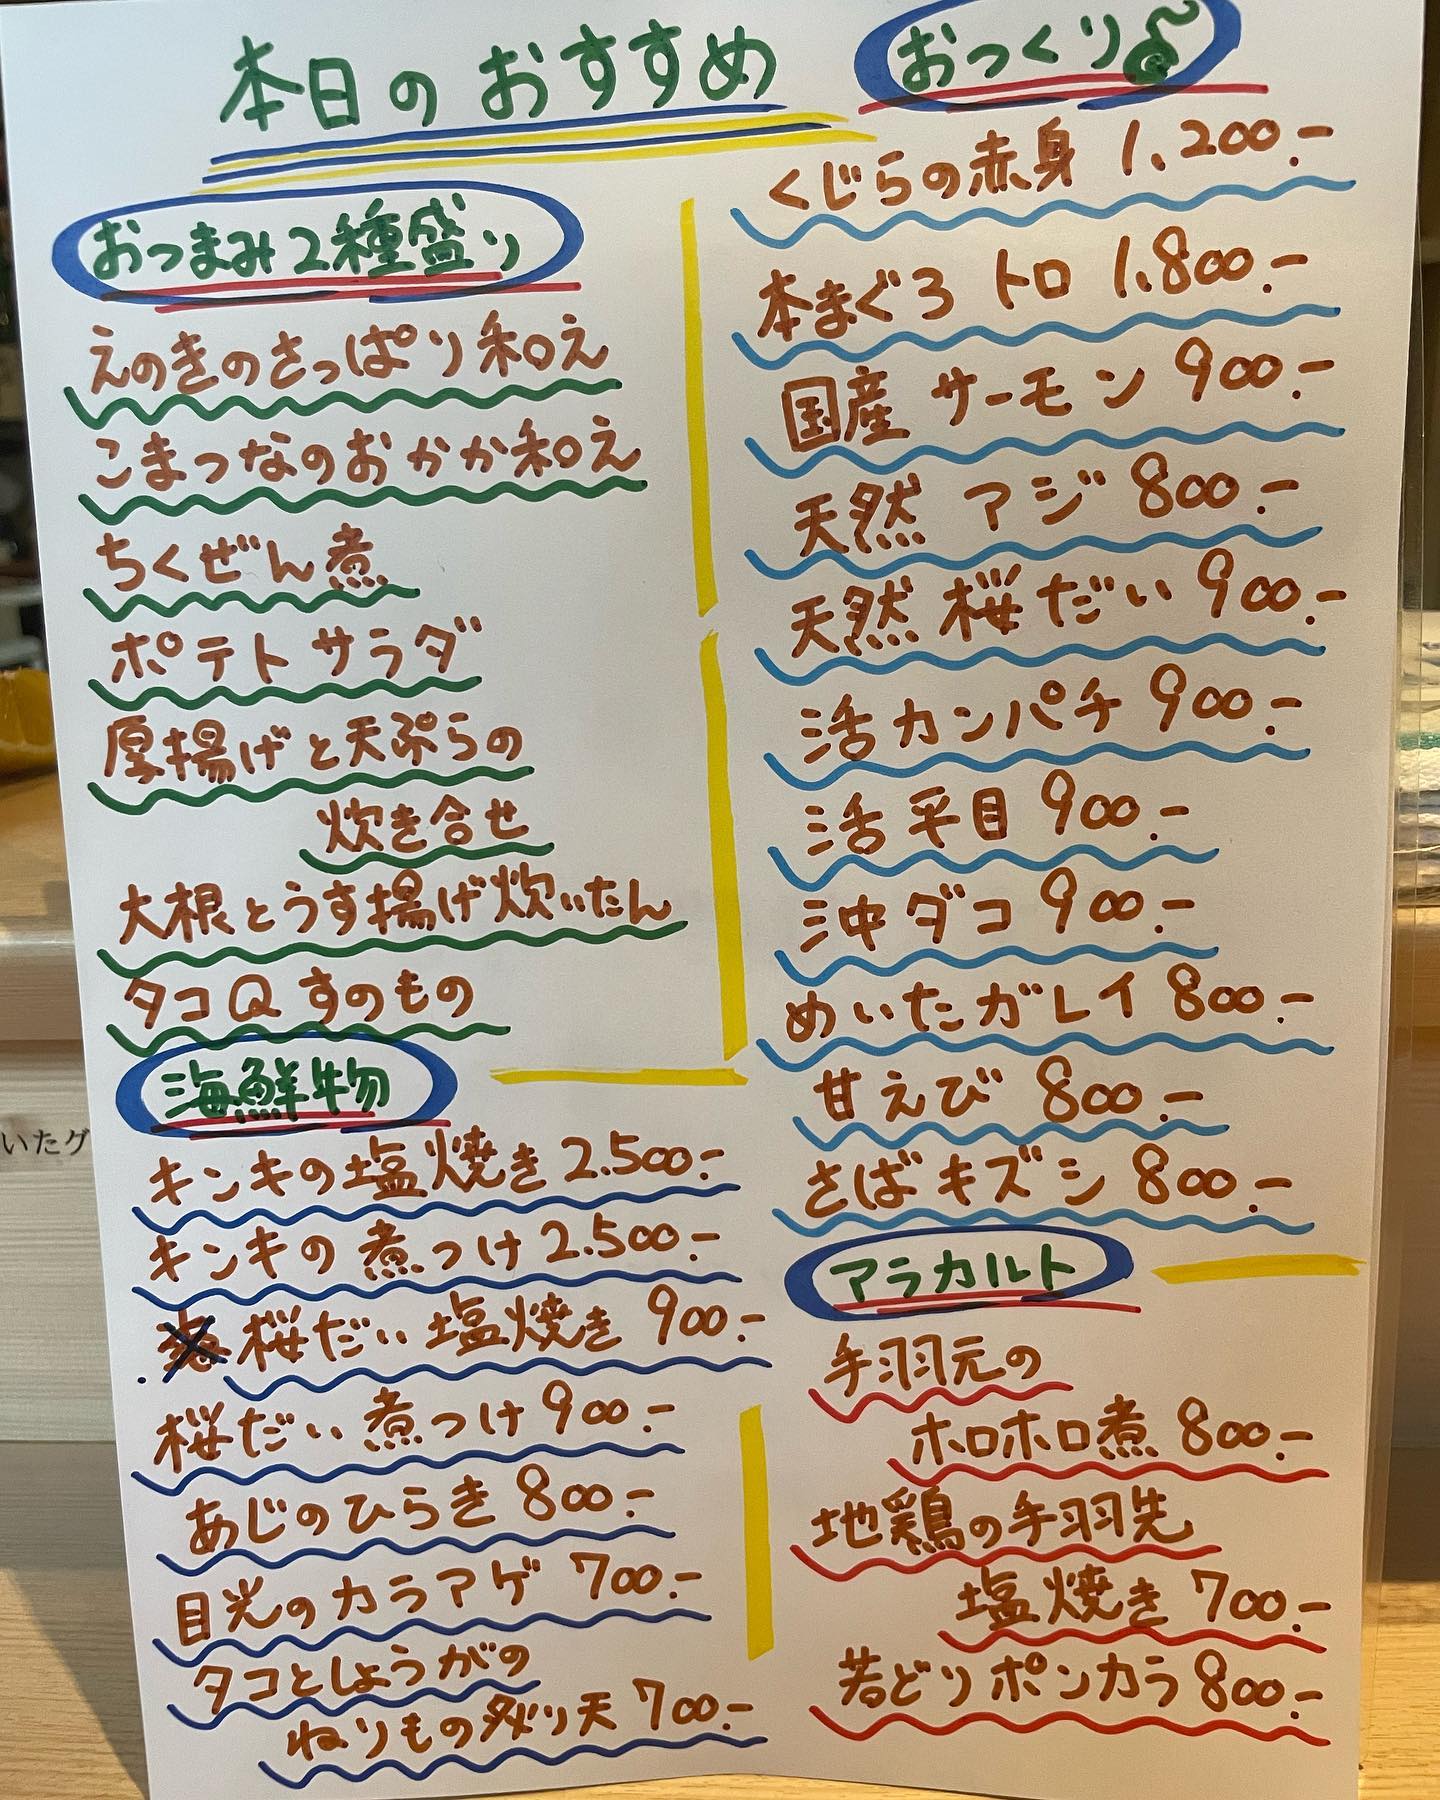 本日のおすすめ
おつまみ2種盛り
えのきのさっぱり和え
こまつなのおかか和え
ちくぜん煮
ポテトサラダ
厚揚げと天ぷらの
炊き合せ
大根とうす揚げ炊いたん
タコQすのもの
海鮮物
キンキの塩焼き 2.500.-
キンキの煮つけ 2.500.-
桜だい 塩焼き 900.-
桜だい 煮つけ 900.-
あじのひらき 800.-
目光のカラアゲ 700.-
タコとしょうがの
ねりもの炙り天 700.-
おつくり
くじらの赤身 1,200.-
本まぐろ トロ 1.800.-
国産 サーモン 900.-
天然 アジ 800.-
天然 桜だい 900.-
活カンパチ 900.-
活平目 900.-
沖ダコ 900.-
めいたガレイ 800.-
甘えび 800.-
さばキズシ 800.-
アラカルト
手羽元の
ホロホロ煮 800.-
地鶏の手羽先
塩焼き 700.-
若どりポンカラ 800.-
いたグ